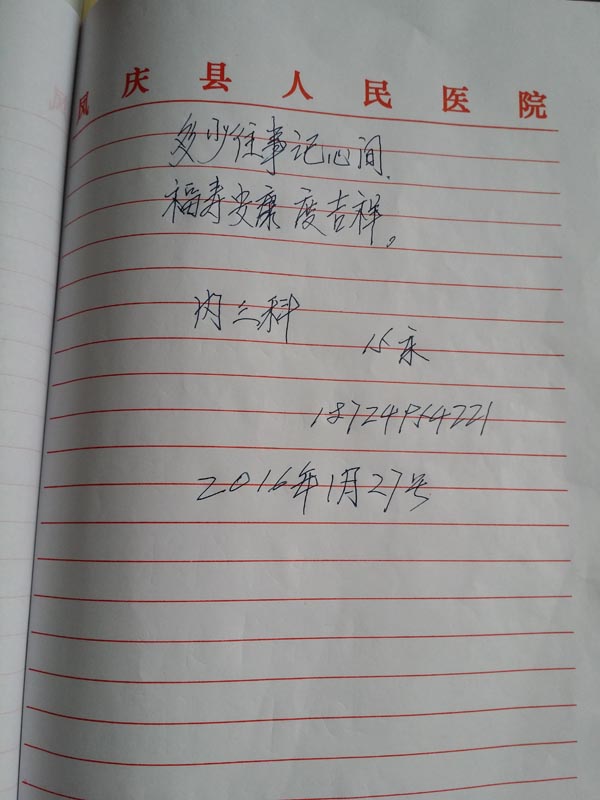 凤庆县人民医院
多少往事记心间.
福寿安康度吉祥。
内三科
小宋
18724954221
2016年1月27号